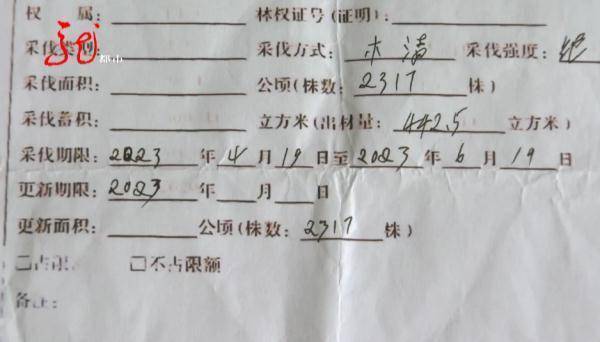 权 属： 林权证号（证明）：
采伐类型： 采伐方式： 采伐强度：
采伐面积： 公顷（株数： 2317 株）
采伐蓄积： 立方米（出材量： 442.5 立方米）
采伐期限： 2023 年 4 月 19 日至 2023 年 6 月 19 日
更新期限： 2023 年 月 日
更新面积： 公顷（株数： 2317 株）
□占限 □不占限额
备注：
都市